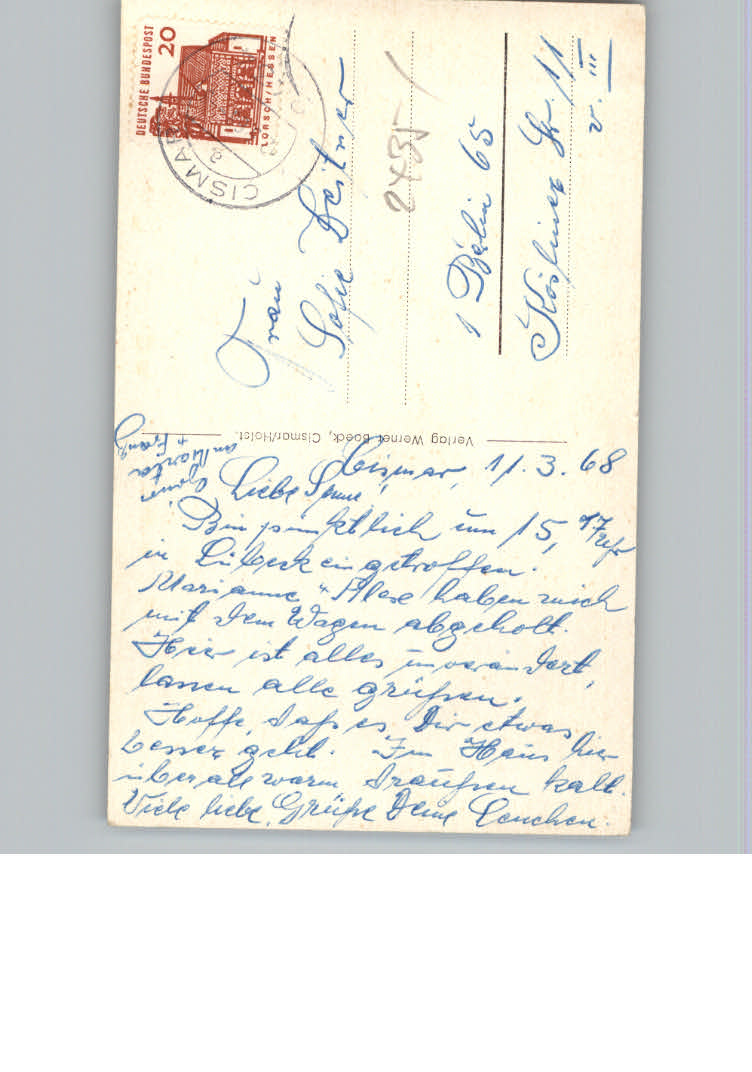 DEUTSCHE BUNDESPOST
20
LORSCH/HESSEN
CISMAR
Frau
Sofie
2435
1 Berlin 65
Kösliner Str. 11
v. III
Verlag Werner Boeck, Cismar/Holst.
an Marta
+ Franz
Cismar, 11.3.68
Liebe
Bin pünktlich um 15,17 Uhr
in Lübeck eingetroffen.
Marianne u. Alex haben mich
mit dem Wagen abgeholt.
Hier ist alles unverändert,
lassen alle grüßen.
Hoffe, daß es Dir etwas
besser geht. Im Haus hier
überall warm draußen kalt.
Viele liebe Grüße Deine Lenchen.